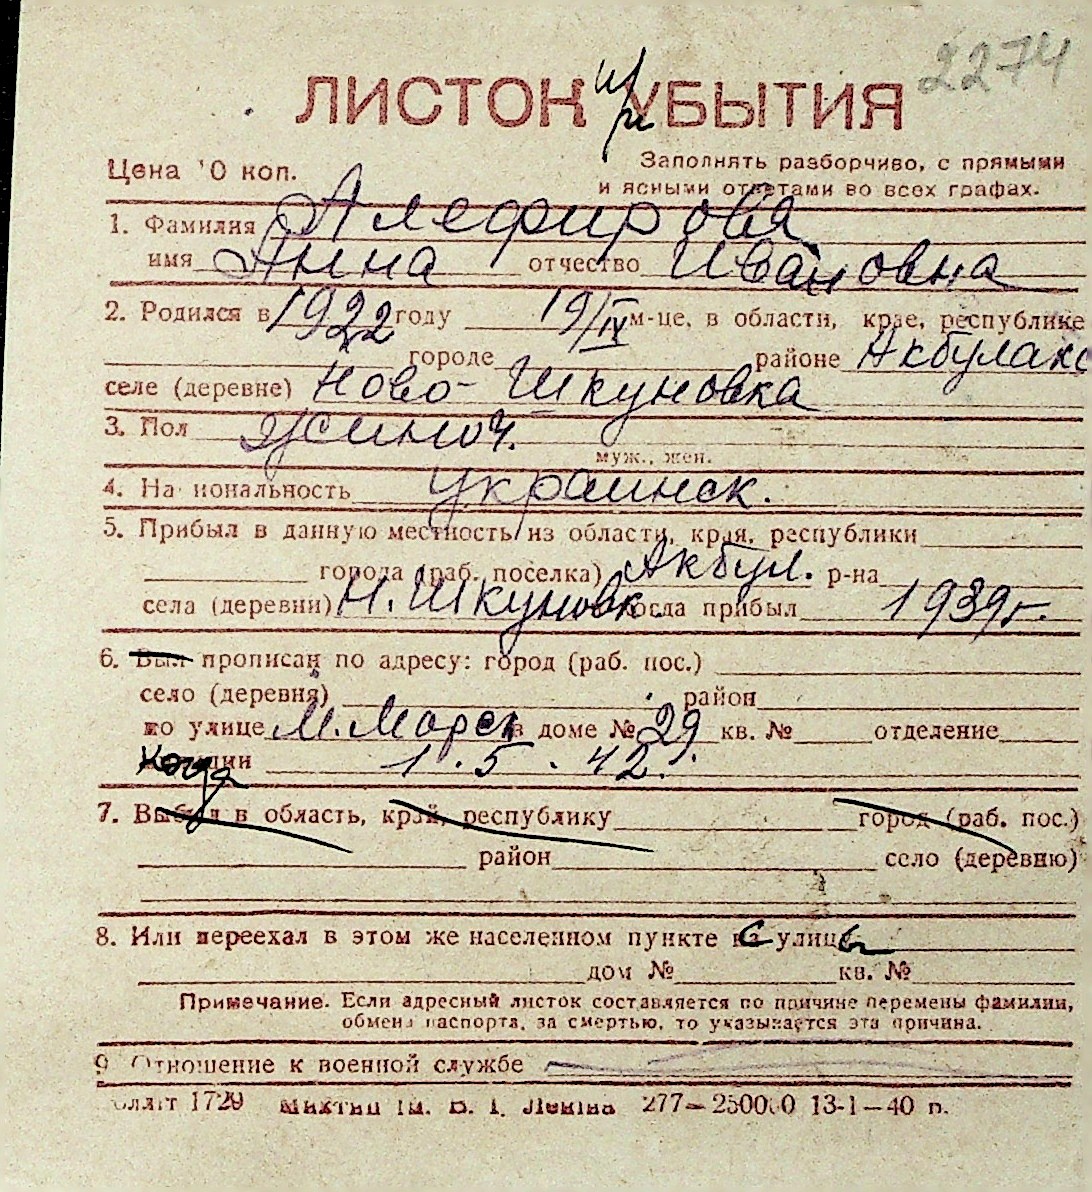 2274
ЛИСТОК при УБЫТИЯ
Цена 10 коп. Заполнять разборчиво, с прямыми
и ясными ответами во всех графах.
1. Фамилия Алефирова
имя Анна отчество Ивановна
2. Родился в 1922 году 19/IV м-це, в области, крае, республике
городе районе Акбулакс
селе (деревне) Ново-Шкуновка
3. Пол женск.
муж., жен.
4. Национальность украинск.
5. Прибыл в данную местность из области, края, республики
города (раб. поселка) Акбул. р-на
села (деревни) Н. Шкуновк когда прибыл 1939г.
6. Был прописан по адресу: город (раб. пос.)
село (деревня) район
по улице М. Морск в доме № 29 кв. № отделение
когда 1.5.42.
7. Выбыл в область, край, республику город (раб. пос.)
район село (деревню)
8. Или переехал в этом же населенном пункте с улицы
дом № кв. №
Примечание. Если адресный листок составляется по причине перемены фамилии,
обмена паспорта, за смертью, то указывается эта причина.
9 Отношение к военной службе
1729 ім. В. І. Леніна 277—250000 13-1—40 п.